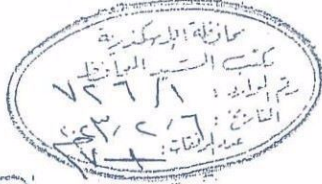 محافظة الإسكندرية
مكتب السيد المحافظ
رقم الوارد : ٧٢٦/١
التاريخ : ٦/٢/٢٠٢٣
عدد المرفقات :